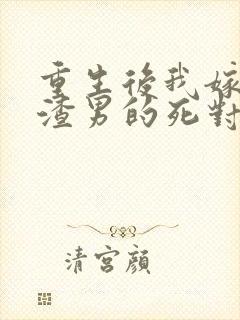 重生後我嫁
渣男的死對
清宮顏